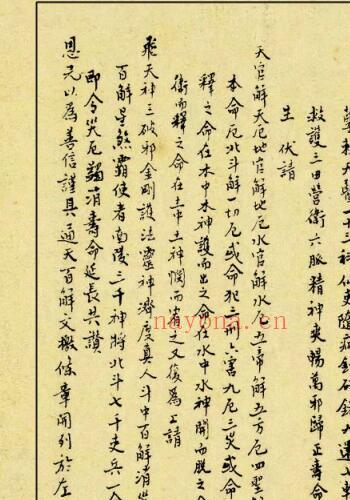 救護三田營衛六脈精神爽暢萬邪歸正壽命
生伏請
天官解天厄地官解地厄水官解水厄五帝解五方厄四聖
本命厄北斗解一切厄或命犯三刑六害九厄三災或命
釋之命在木中木神護而出之命在水中水神開而脫之命
衛而釋之命在土中土神憫而容之又復為上請
飛天神王破邪金剛護法靈神濟度真人斗中百解消災
百解星煞霸使者南陵三千神將北斗七千吏兵一
即令災厄蠲消壽命延長共讚
恩光以為善信謹具通天百解文檄條章開列於左
nayona.cn